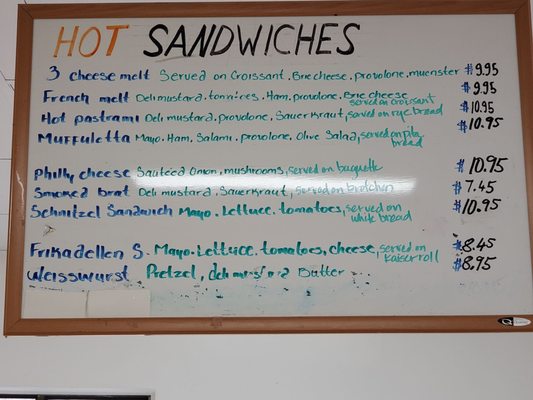 HOT SANDWICHES
3 cheese melt Served on Croissant. Brie cheese, provolone, muenster $9.95
French melt Deli mustard. tomatoes, Ham. provolone. Brie cheese $9.95
served on croissant
Hot pastrami Deli mustard, provolone, SauerKraut, served on rye bread $10.95
Muffuletta Mayo. Ham, Salami. provolone, Olive Salad, served on pita $10.95
bread
Philly cheese Sauteed onion, mushrooms, served on baguette $10.95
Smoked brat Deli mustard, Sauerkraut, served on brotchen $7.45
Schnitzel Sandwich Mayo. Lettuce. tomatoes, served on $10.95
white bread
Frikadellen S. Mayo. Lettuce. tomatoes, cheese, served on $8.45
kaiser roll
Weisswurst Pretzel, deli mustard Butter $8.95